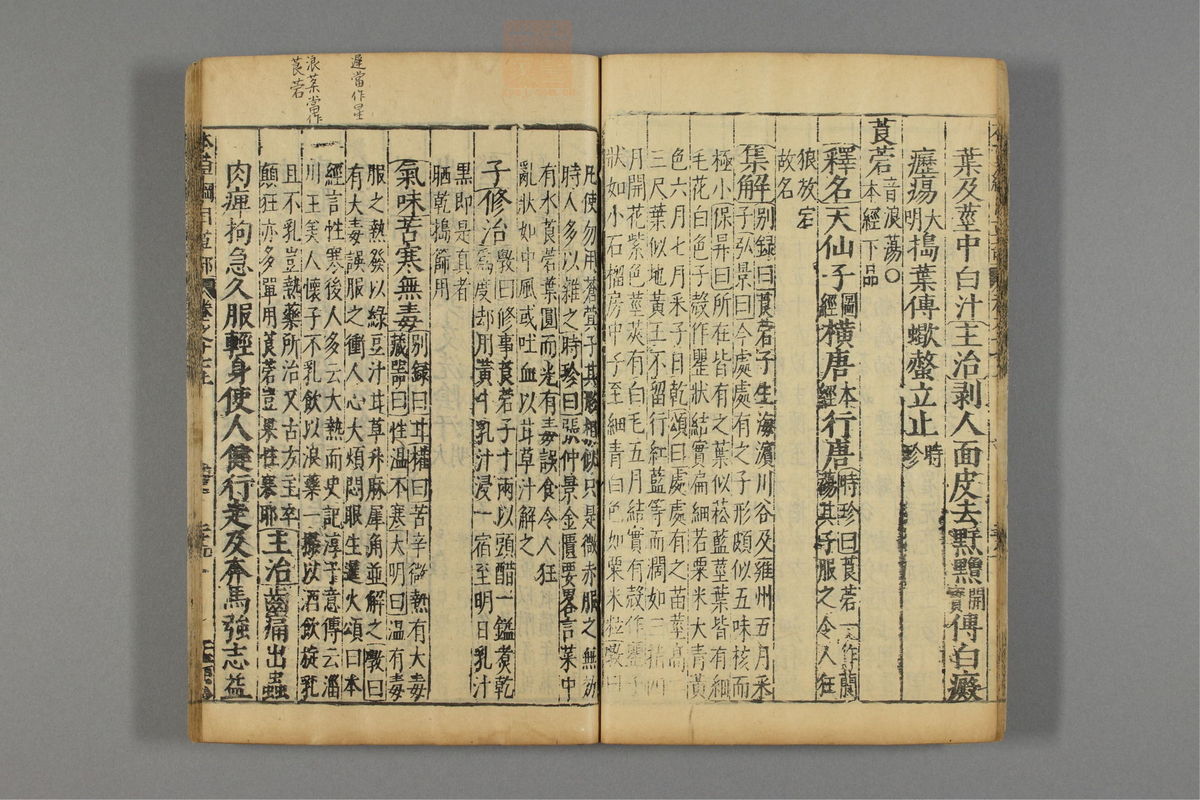 葉及莖中白汁主治剥人面皮去䵟䵳開寶傅白癜
癧瘍大明搗葉傅蠍螫立止時珍
莨菪音浪蕩〇本經下品
釋名天仙子圖經橫唐本經行唐時珍曰莨菪一作蘭蕩其子服之令人狂
狼放宕故名
集解别録曰莨菪子生海濱川谷及雍州五月采
子弘景曰今處處有之子形頗似五味核而
極小保昇曰所在皆有之葉似菘藍莖葉皆有細
毛花白色子殼作罌狀結實扁細若粟米大青黄
色六月七月采子日乾頌曰處處有之苗莖高二
三尺葉似地黄王不留行紅藍等而濶如三指四
月開花紫色莖莢有白毛五月結實有殼作罌子
狀如小石榴房中子至細青白色如粟米粒斆曰
凡使勿用蒼蓂子其形相似只是微赤服之無効
時人多以雜之時珍曰張仲景金匱要畧言菜中
有水莨菪葉圓而光有毒誤食令人狂
亂狀如中風或吐血以甘草汁解之
子修治斆曰修事莨菪子十兩以頭醋一鎰煮乾
爲度却用黄牛乳汁浸一宿至明日乳汁
黒即是真者
晒乾搗篩用
氣味苦寒無毒别録曰甘權曰苦辛微熱有大毒
藏器曰性温不寒大明曰温有毒
服之熱發以綠豆汁甘草升麻犀角並解之斆曰
有大毒誤服之衝人心大煩悶眼生暹火頌曰本
經言性寒後人多云大熱而史記淳于意傳云淄
川王美人懷子不乳飲以浪藥一撮以酒飲旋乳
且不乳豈熱藥所治又古方主卒
顛狂亦多單用莨菪豈果性寒耶主治齒痛出蟲
肉痺拘急久服輕身使人健行走及奔馬強志益
暹當作星
浪菜當作
莨菪